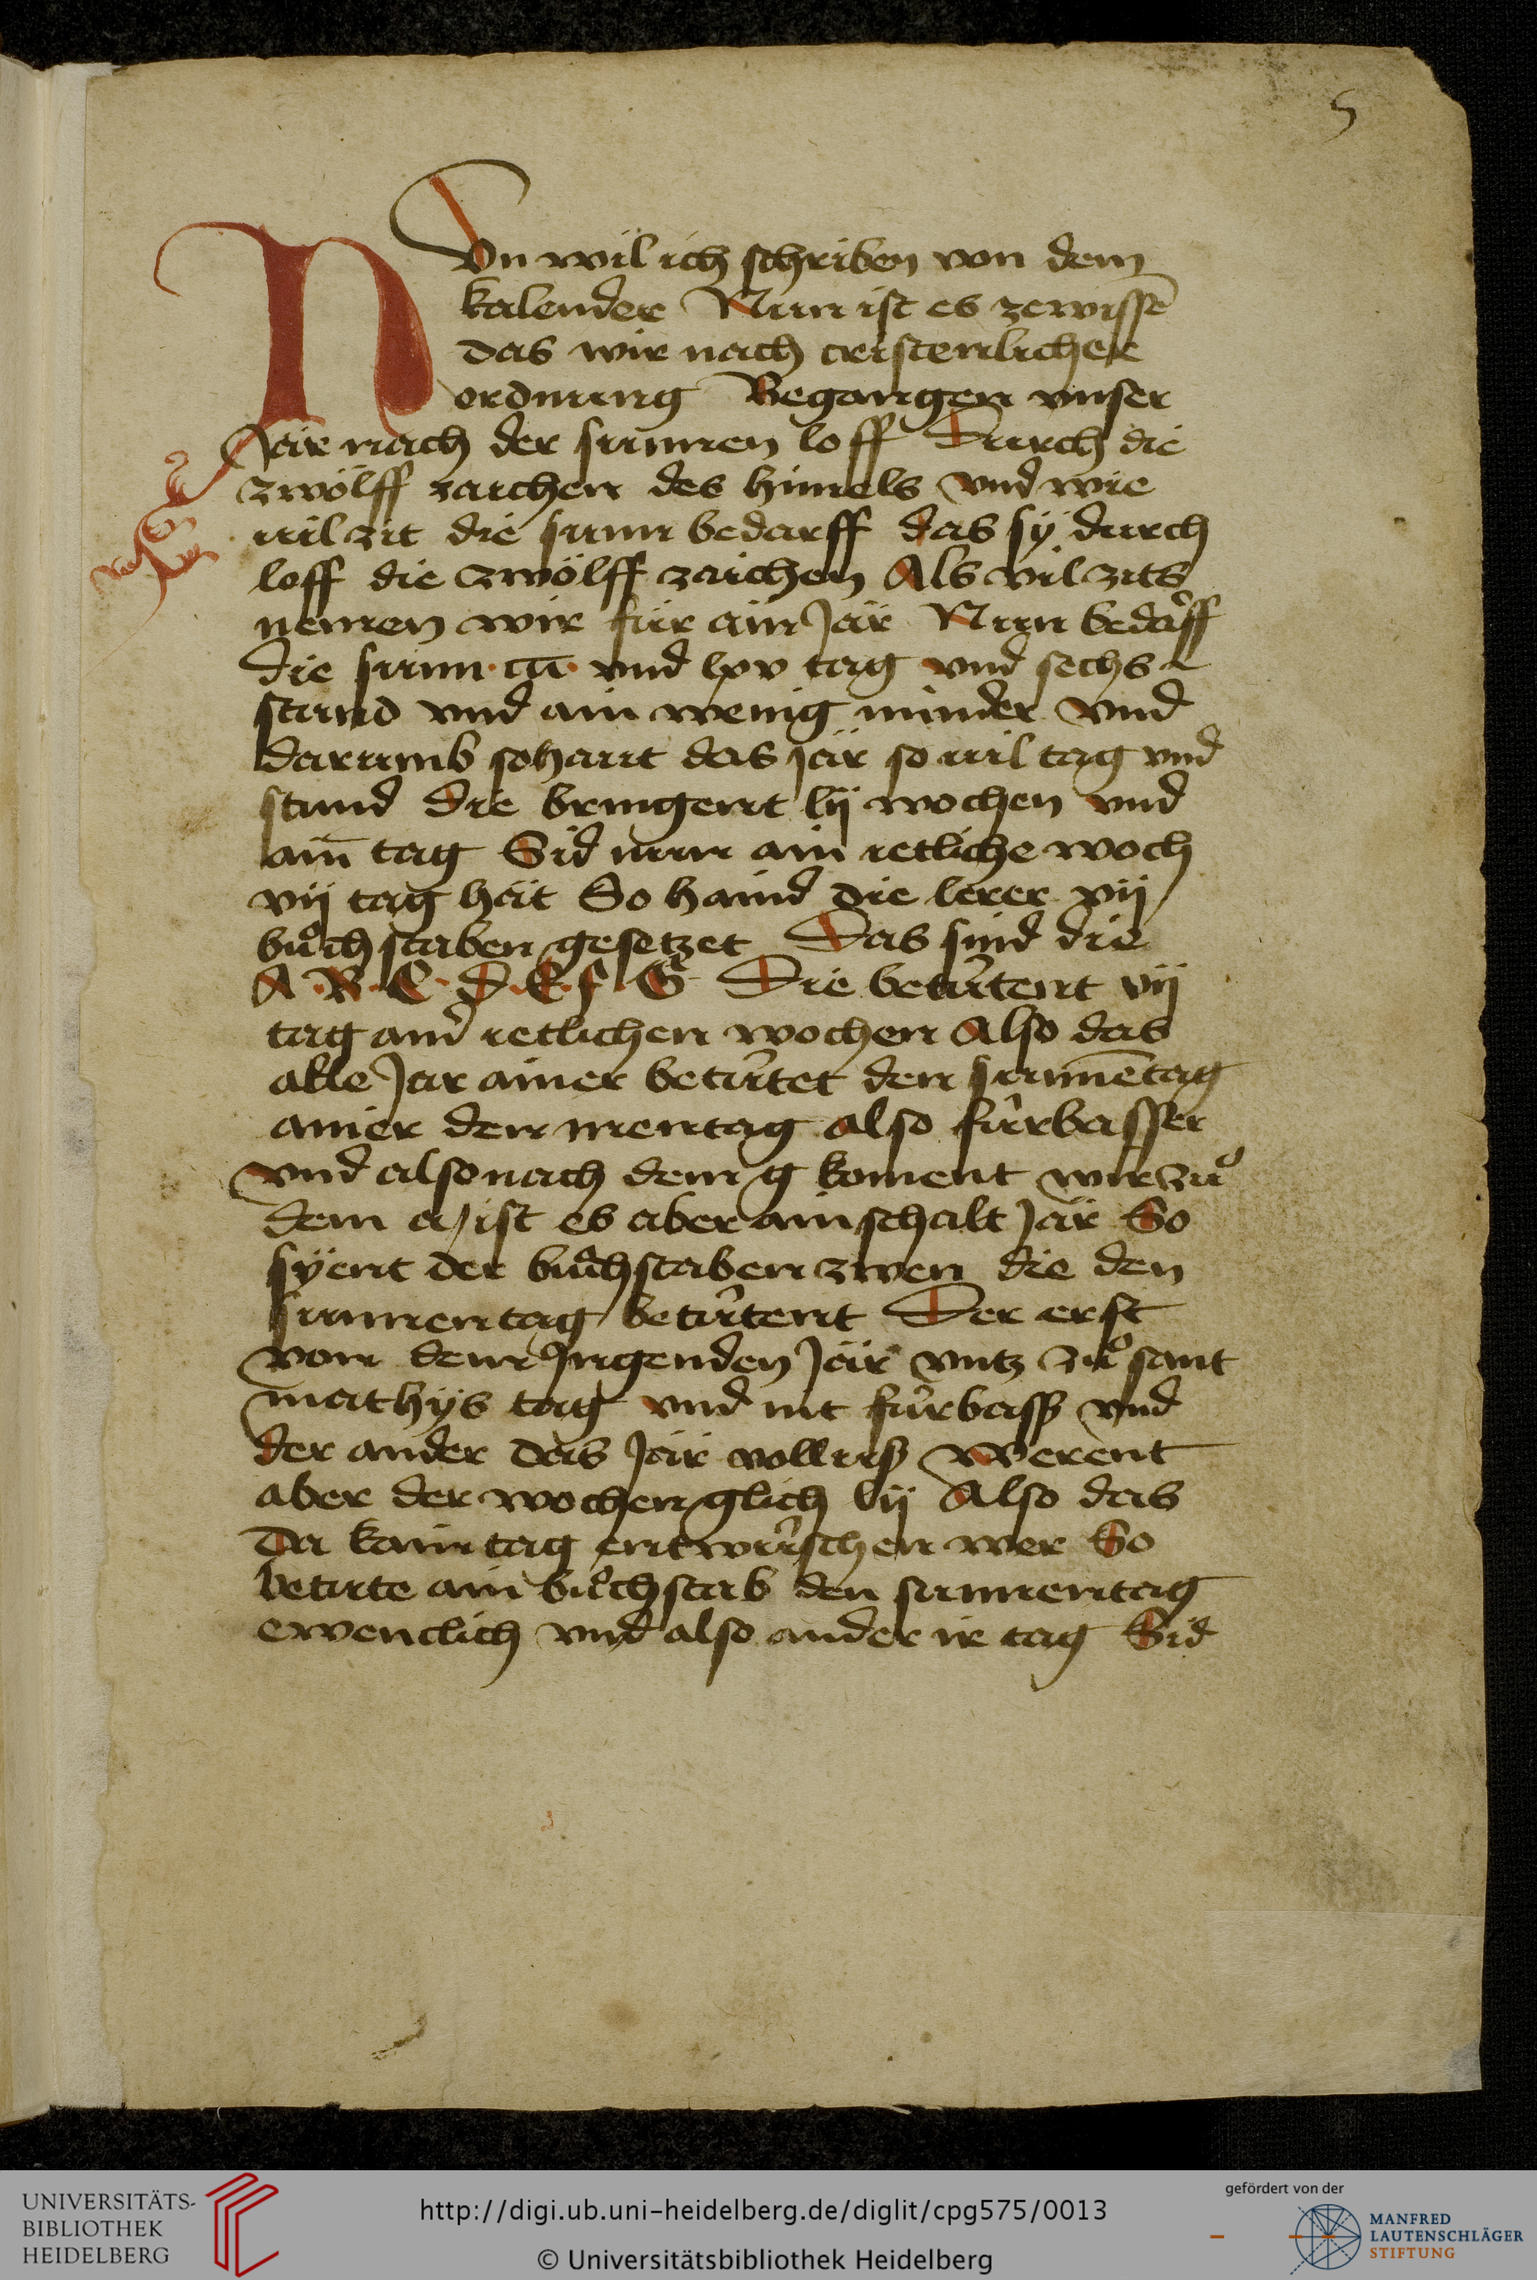 5
NVn wil ich schriben von dem
kalender Nun ist es zewissē
das wir nach cristenlicher
ordnung Begangen vnser
Jar nach der sunnen loff Durch die
zwölff zaichen des himels vnd wie
uil zit die sunn bedarff das sÿ durch
loff die zwölff zaichen Als vil zits
nemen wir für ain Jär Nun bedarff
die sunn vnd lxv tag vnd sechs
stund vnd ain wenig minder vnd
darumb so haut das jär so uil tag vnd
stund Die bringent lij wochen vnd
ain tag Sid nun ain ietliche woch
vij tag hät So haind die lerer vij
bůchstaben gesetzet Das sind die
A · B · C · D · E · f · G Die betütent vij
tag ainr ietlichen wochen Also das
alle Jar ainer betütet den sunnētag
ainer den mentag also fürbasser
vnd also nach dem g koment wir zů
dem a / ist es aber ain schalt Jär So
sÿent der bůchstaben zwen die den
sunnentag betütent Der erst
von dem Jngenden Jär vntz zů sant
mathÿs tag vnd nit fürbass vnd
der ander das Jär vollus Werent
aber der wochen glich lij Also das
da kain tag entzwüschen wer So
betute ain bůchstab den sunnentag
ewenclich vnd also ander ir tag Sid
UNIVERSITÄTS-
BIBLIOTHEK
HEIDELBERG
http://digi.ub.uni-heidelberg.de/diglit/cpg575/0013
© Universitätsbibliothek Heidelberg
gefördert von der
MANFRED
LAUTENSCHLÄGER
STIFTUNG